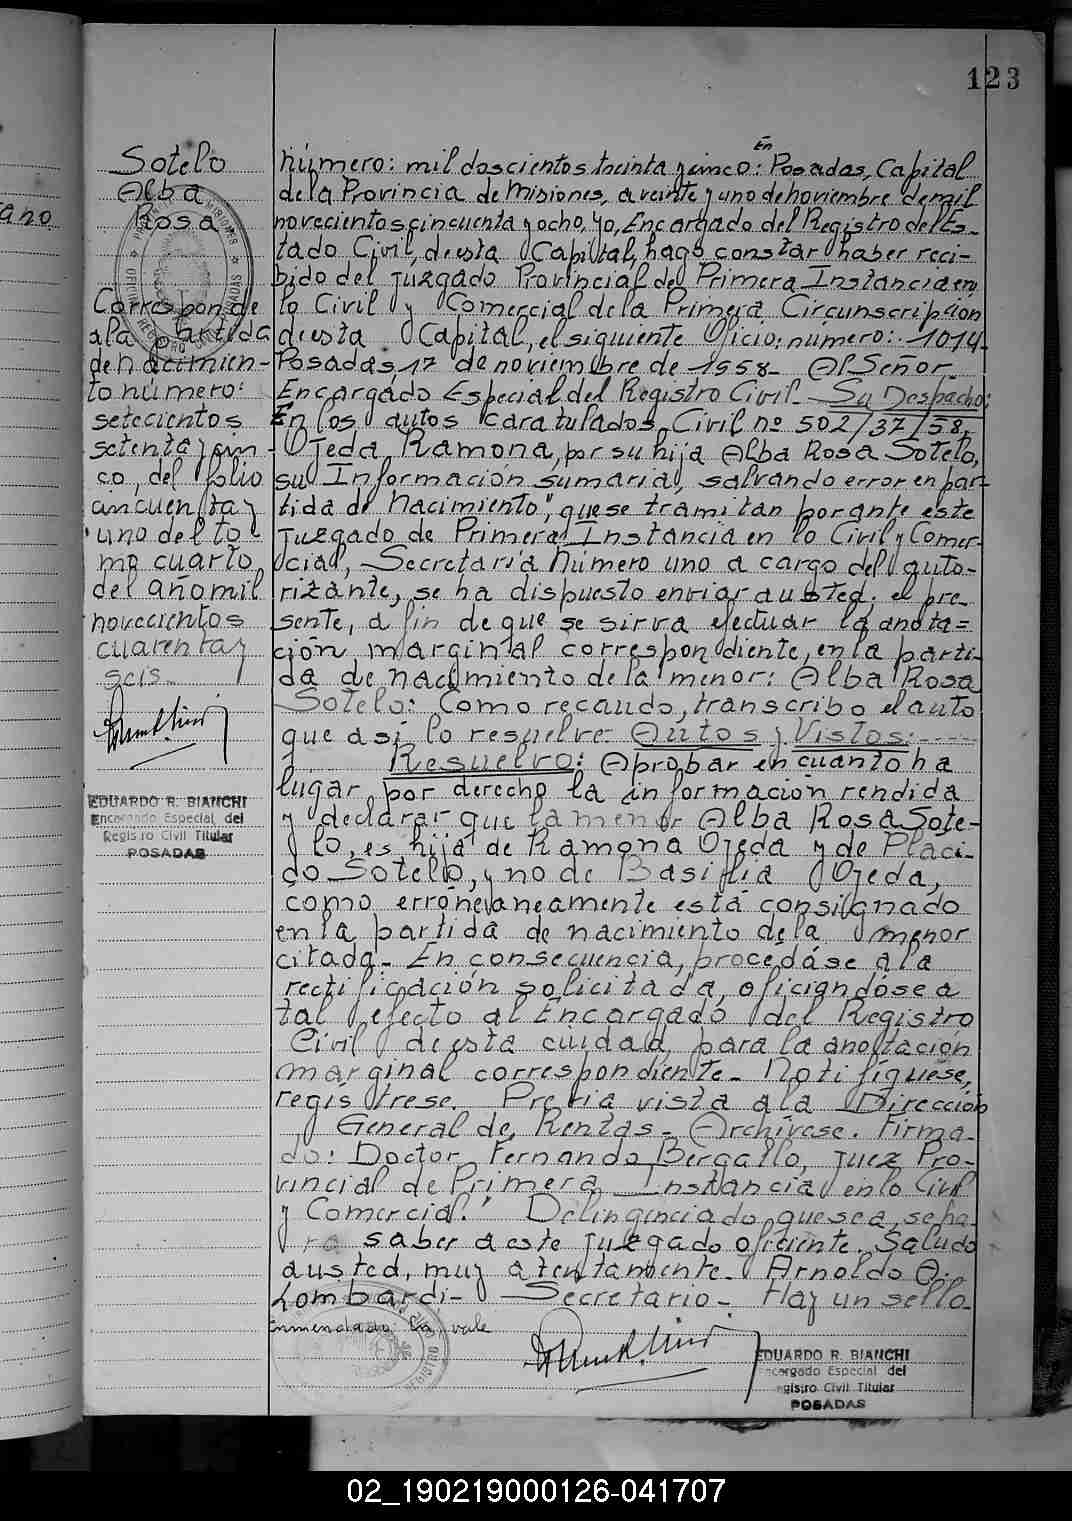 123
Sotelo
Alba
Rosa
Corresponde
a la partida
de nacimien-
to número:
setecientos
setenta y cin-
co, del folio
cincuenta y
uno del to-
mo cuarto,
del año mil
novecientos
cuarenta y
seis.-
EDUARDO R. BIANCHI
Encargado Especial del
Registro Civil Titular
POSADAS
En
número: mil doscientos treinta y cinco: Posadas, Capital
de la Provincia de Misiones, a veinte y uno de noviembre de mil
novecientos cincuenta y ocho, yo, Encargado del Registro del Es-
tado Civil, de esta Capital, hago constar haber reci-
bido del Juzgado Provincial de Primera Instancia en
lo Civil y Comercial de la Primera Circunscripción
de esta Capital, el siguiente Oficio: número: 1014-
Posadas, 17 de noviembre de 1958- Al Señor
Encargado Especial del Registro Civil- Su Despacho:
En los autos caratulados, Civil nº 502/37/58,
Ojeda Ramona, por su hija Alba Rosa Sotelo,
su Información sumaria, salvando error en par-
tida de Nacimiento", que se tramitan por ante este
Juzgado de Primera Instancia en lo Civil y Comer-
cial, Secretaría Número uno a cargo del auto-
rizante, se ha dispuesto enviar a usted, el pre-
sente, a fin de que se sirva efectuar la anota=
ción marginal correspondiente, en la parti-
da de nacimiento de la menor: Alba Rosa
Sotelo: Como recaudo, transcribo el auto
que así lo resuelve: Autos y Vistos: -----
Resuelvo: Aprobar en cuanto ha
lugar por derecho la información rendida
y declarar que la menor Alba Rosa Sote-
lo, es hija de Ramona Ojeda y de Pláci-
do Sotelo, y no de Basilia Ojeda,
como erróneaneamente está consignado
en la partida de nacimiento de la menor
citada- En consecuencia, procedáse a la
rectificación solicitada, oficiándose a
tal efecto al Encargado del Registro
Civil de esta cuidad, para la anotación
marginal correspondiente- Notifíquese,
regístrese. Previa vista a la Dirección
General de Rentas- Archívese. Firma-
do: Doctor Fernando Bergallo, Juez Pro-
vincial de Primera Instancia en lo Civil
y Comercial." Delingenciado que sea, se ha-
rá saber a este Juzgado oficiente. Saludo
a usted, muy atentamente- Arnoldo A.
Lombardi- Secretario- Hay un sello-
Enmendado: En, vale
EDUARDO R. BIANCHI
Encargado Especial del
Registro Civil Titular
POSADAS
02_190219000126-041707